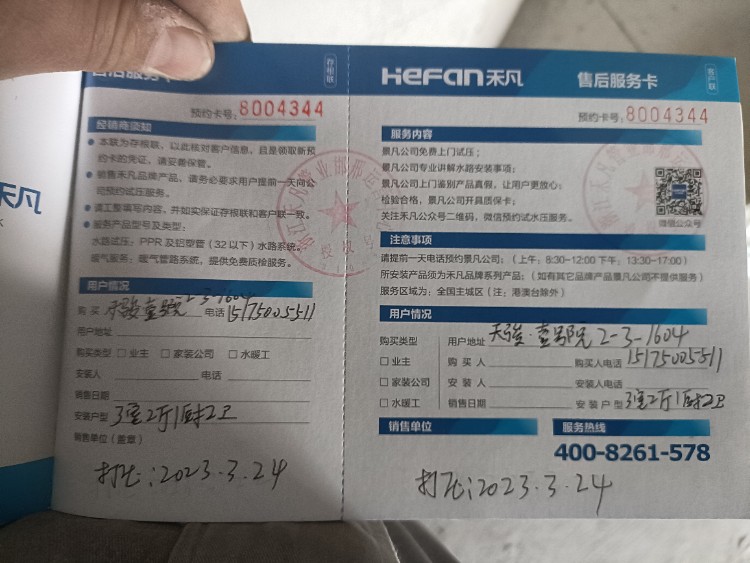 禾凡
售后服务卡
存根联
预约卡号: 8004344
经销商须知
本联为存根联，以此核对客户信息，且是领取新预
约卡的凭证，请妥善保管。
销售禾凡品牌产品，请务必要求用户提前一天向公
司预约试压服务。
请工整填写内容，并如实保证存根联和客户联一致。
服务产品型号及类型：
水路试压：PPR及铝塑管（32以下）水路系统。
暖气服务：暖气管路系统，提供免费质检服务。
用户情况
购买人 2-3-1604 电话 15175005511
用户地址
购买类型 □业主 □家装公司 □水暖工
安装人 电话
销售日期
安装户型 3室2厅1厨2卫
销售单位（盖章）
打压:2023.3.24
HEFAN禾凡 售后服务卡
客户联
预约卡号: 8004344
服务内容
景凡公司免费上门试压；
景凡公司专业讲解水路安装事项；
景凡公司上门鉴别产品真假，让用户更放心；
检验合格，景凡公司开具质保卡；
关注禾凡公众号二维码，微信预约试水压服务。
微信公众号
注意事项
请提前一天电话预约景凡公司：（上午：8:30-12:00 下午：13:30-17:00）
所安装产品须为禾凡品牌系列产品；（如有其它品牌产品景凡公司不提供服务）
服务区域为：全国主城区（注：港澳台除外）
用户情况
购买类型 用户地址 2-3-1604
□业主 购买人 购买人电话 15175005511
□家装公司 安装人 安装人电话
□水暖工 销售日期 安装户型 3室2厅1厨2卫
销售单位 服务热线
400-8261-578
打压:2023.3.24